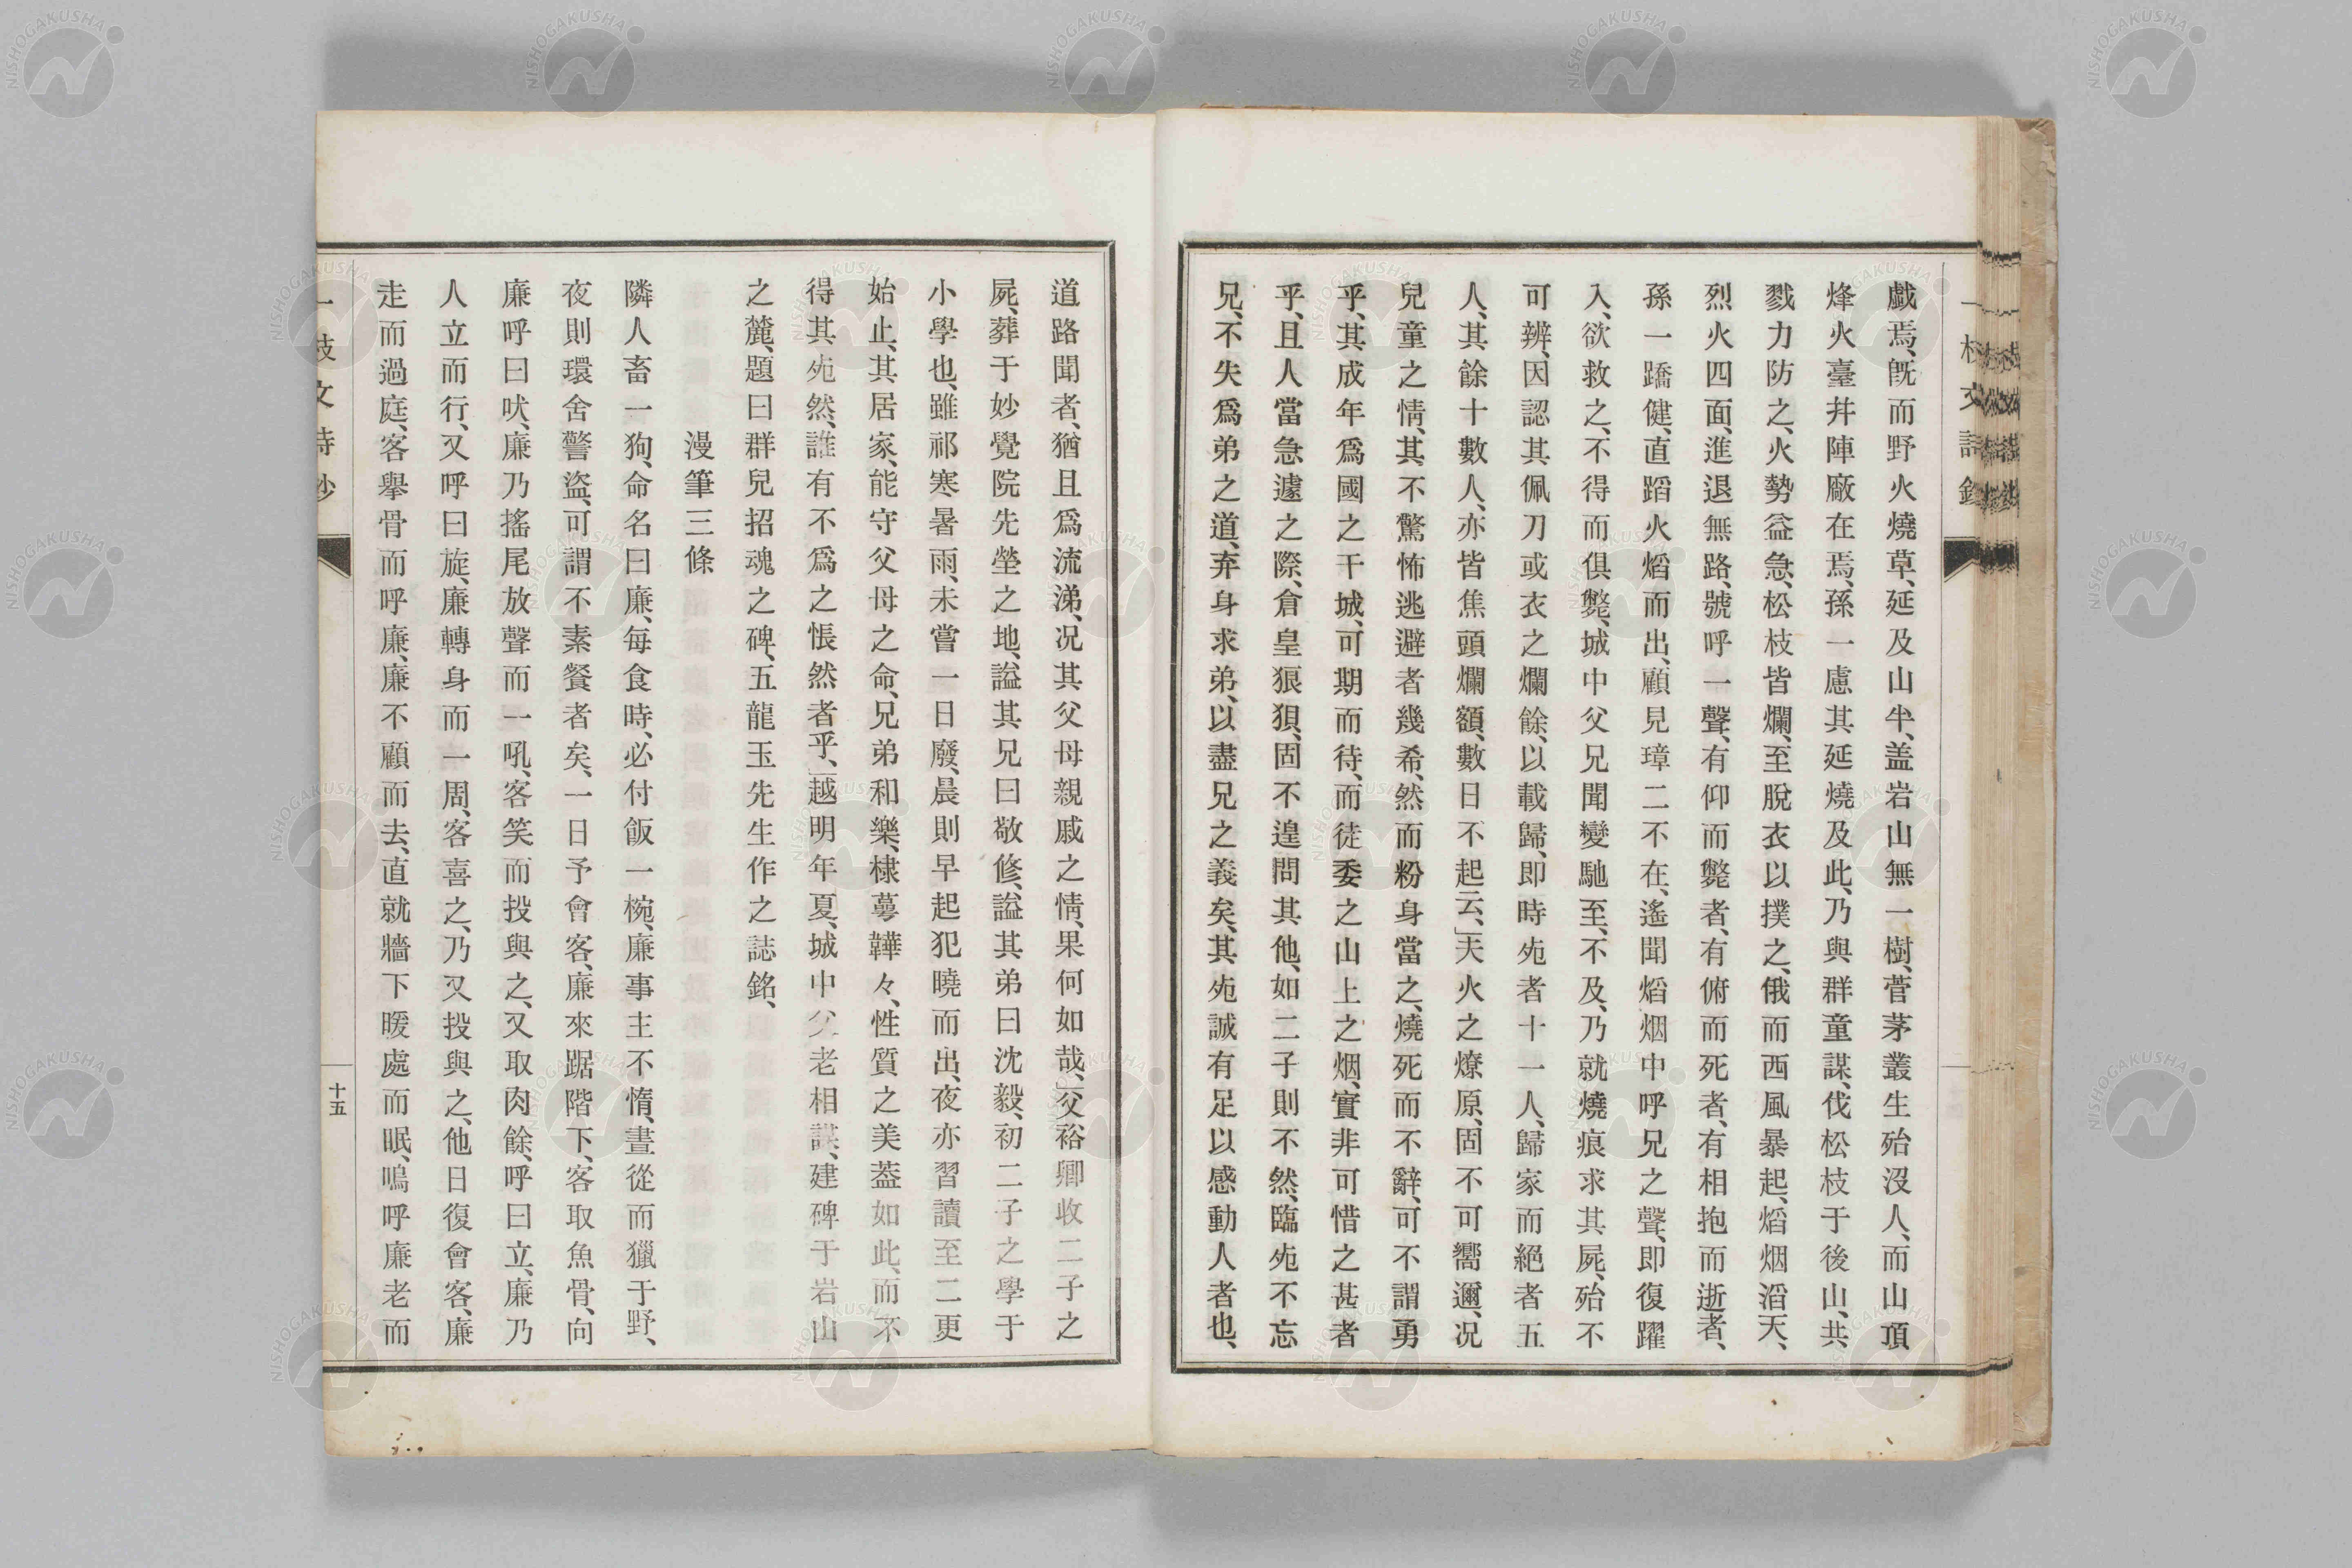 戯焉、既而野火燒草、延及山半、盖岩山無一樹、菅茅叢生殆沒人、而山頂
烽火臺幷陣廠在焉、孫一慮其延燒及此、乃與群童謀、伐松枝于後山、共
戮力防之、火勢益急、松枝皆爛、至脫衣以撲之、俄而西風暴起、熖烟滔天、
烈火四面、進退無路、號呼一聲、有仰而斃者、有俯而死者、有相抱而逝者、
孫一蹻健、直蹈火熖而出、顧見璋二不在、遙聞熖烟中呼兄之聲、即復躍
入、欲救之、不得而俱斃、城中父兄聞變馳至、不及、乃就燒痕求其屍、殆不
可辨、因認其佩刀或衣之爛餘、以載歸、即時死者十一人、歸家而絕者五
人、其餘十數人、亦皆焦頭爛額、數日不起云、」天火之燎原、固不可嚮邇、况
兒童之情、其不驚怖逃避者幾希、然而粉身當之、燒死而不辭、可不謂勇
乎、其成年爲國之干城、可期而待、而徒委之山上之烟、實非可惜之甚者
乎、且人當急遽之際、倉皇狼狽、固不遑問其他、如二子則不然、臨死不忘
兄、不失爲弟之道、弃身求弟、以盡兄之義矣、其死誠有足以感動人者也、
道路聞者、猶且爲流涕、况其父母親戚之情、果何如哉、」父裕卿收二子之
屍、葬于妙覺院先塋之地、謚其兄曰敬修、謚其弟曰沈毅、初二子之學于
小學也、雖祁寒暑雨、未嘗一日廢、晨則早起犯曉而出、夜亦習讀至二更
始止、其居家、能守父母之命、兄弟和樂、棣蕚韡々、性質之美葢如此、而不
得其死然、誰有不爲之悵然者乎、」越明年夏、城中父老相謀、建碑于岩山
之麓、題曰群兒招魂之碑、五龍玉先生作之誌銘、
漫筆三條
隣人畜一狗、命名曰廉、每食時、必付飯一椀、廉事主不惰、晝從而獵于野、
夜則環舍警盜、可謂不素餐者矣、一日予會客、廉來踞階下、客取魚骨、向
廉呼曰吠、廉乃搖尾放聲而一吼、客笑而投與之、又取肉餘、呼曰立、廉乃
人立而行、又呼曰旋、廉轉身而一周、客喜之、乃又投與之、他日復會客、廉
走而過庭、客擧骨而呼廉、廉不顧而去、直就牆下暖處而眠、嗚呼廉老而
十五